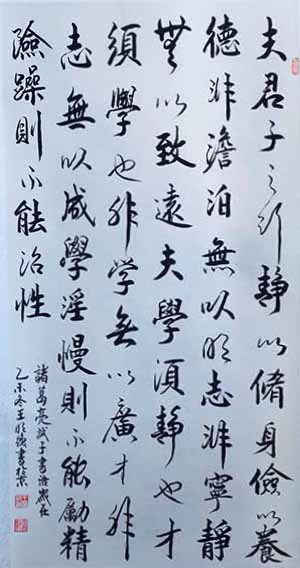 夫君子之行靜以脩身儉以養
德非澹泊無以明志非寧靜
無以致遠夫學須靜也才
須學也非学无以廣才非
志無以成學淫慢則不能勵精
險躁則不能治性
諸葛亮誡子書語歲在
乙未冬王明書